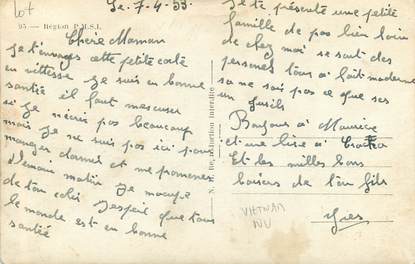 Lot
Le. 7-4-53
95 — Région P.M.S.I.
Chère Maman
Je t'envoyes cette petite carte
en vittesse Je suis en bonne
santée il faut mescuser
si je nécris pas beaucoup
mais Je ne suis pas ici pour
manger dormir et me promener
Demain matin Je
de ton colis Jespère que tous
le monde est en bonne
santée
N. Reproduction interdite
Je te présente une petite
famille de pas bien loin
de chez moi se sont des
personnes tous à fait moderne
sa ne sais pas ce que ses
un fusils
Bonjour à Maurice
et une bise à
Et les milles bons
baisers de ton fils
Yves
VIETNAM
NU